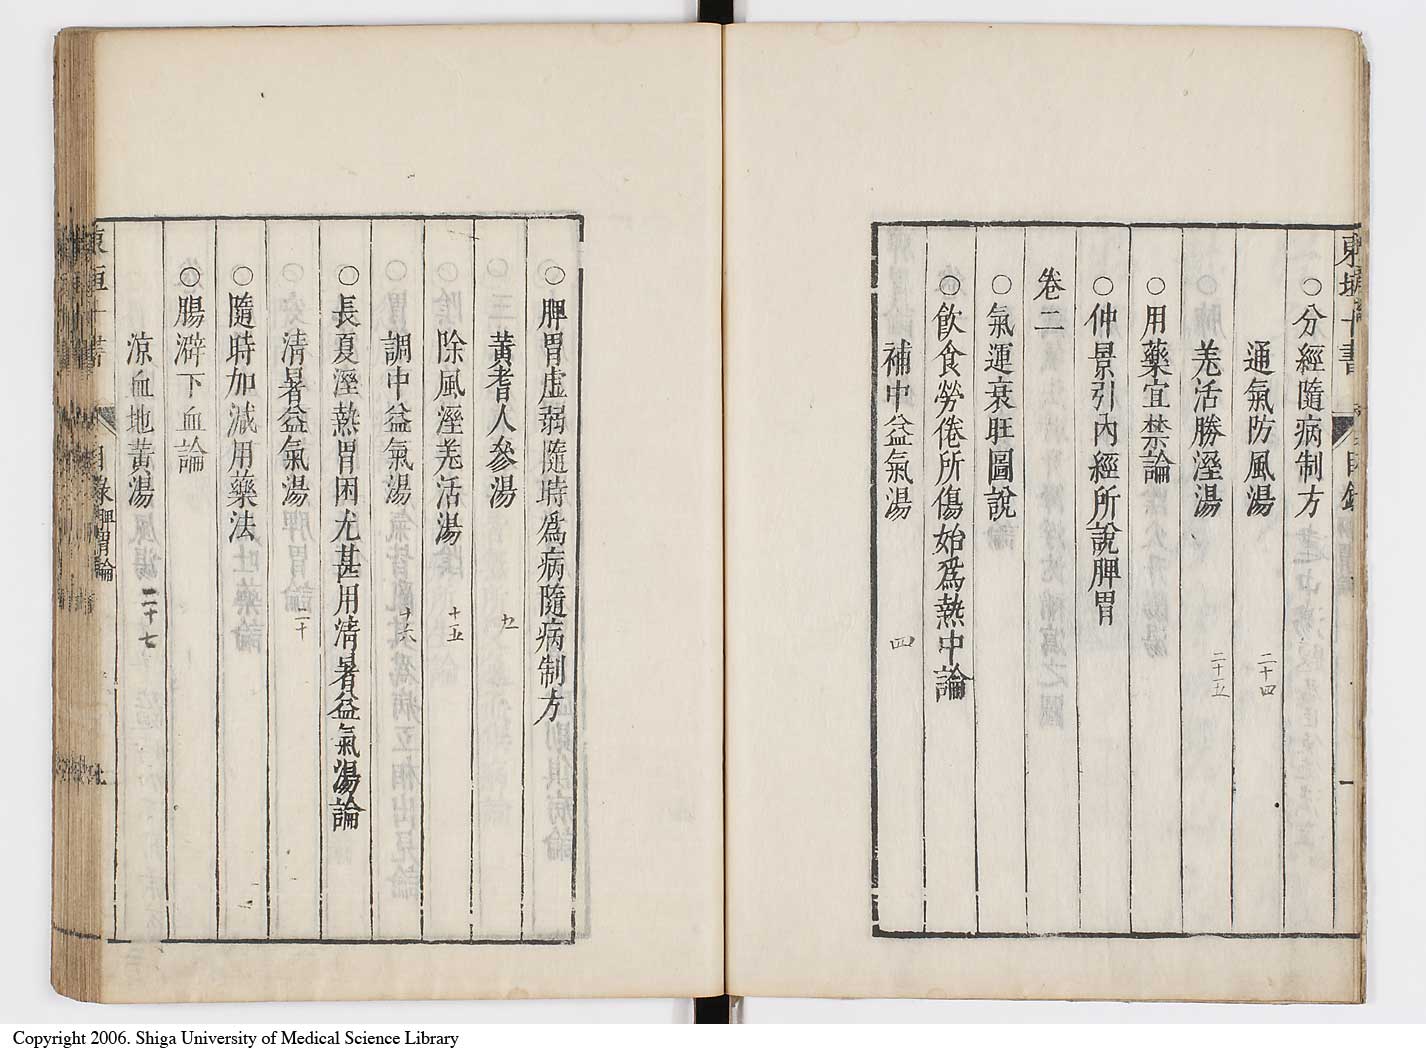 東垣十書 目錄 一
○分經隨病制方
通氣防風湯 二十四
羌活勝溼湯 二十五
○用藥宜禁論
○仲景引內經所說脾胃
卷二
○氣運衰旺圖說
○飲食勞倦所傷始爲熱中論
補中益氣湯 四
○脾胃虛弱隨時爲病隨病制方
黃耆人參湯 九
除風溼羌活湯 十五
調中益氣湯 十六
○長夏溼熱胃困尤甚用淸暑益氣湯論
淸暑益氣湯 二十
○隨時加減用藥法
○腸澼下血論
涼血地黃湯 二十七
東垣十書 目錄 脾胃論
Copyright 2006. Shiga University of Medical Science Library